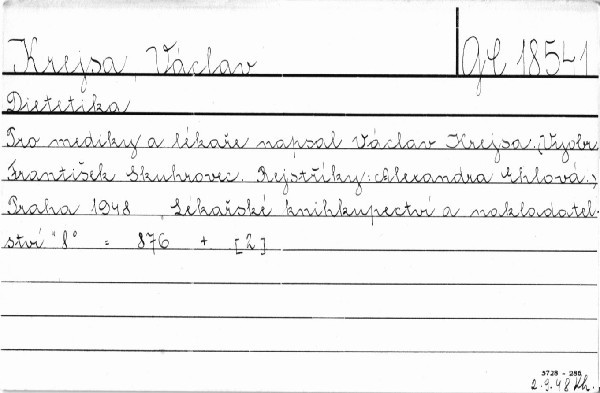 Krejsa, Václav
GC 18541
Dietetika
Pro mediky a lékaře napsal Václav Krejsa. (Vyzdobr
František Skuhrovec. Rejstříky: Alexandra Ehlová.)
Praha 1948 Lékařské knihkupectví a nakladatel-
ství " 8° = 876 + [2]
5728 - 285
2.9.48 Kh.